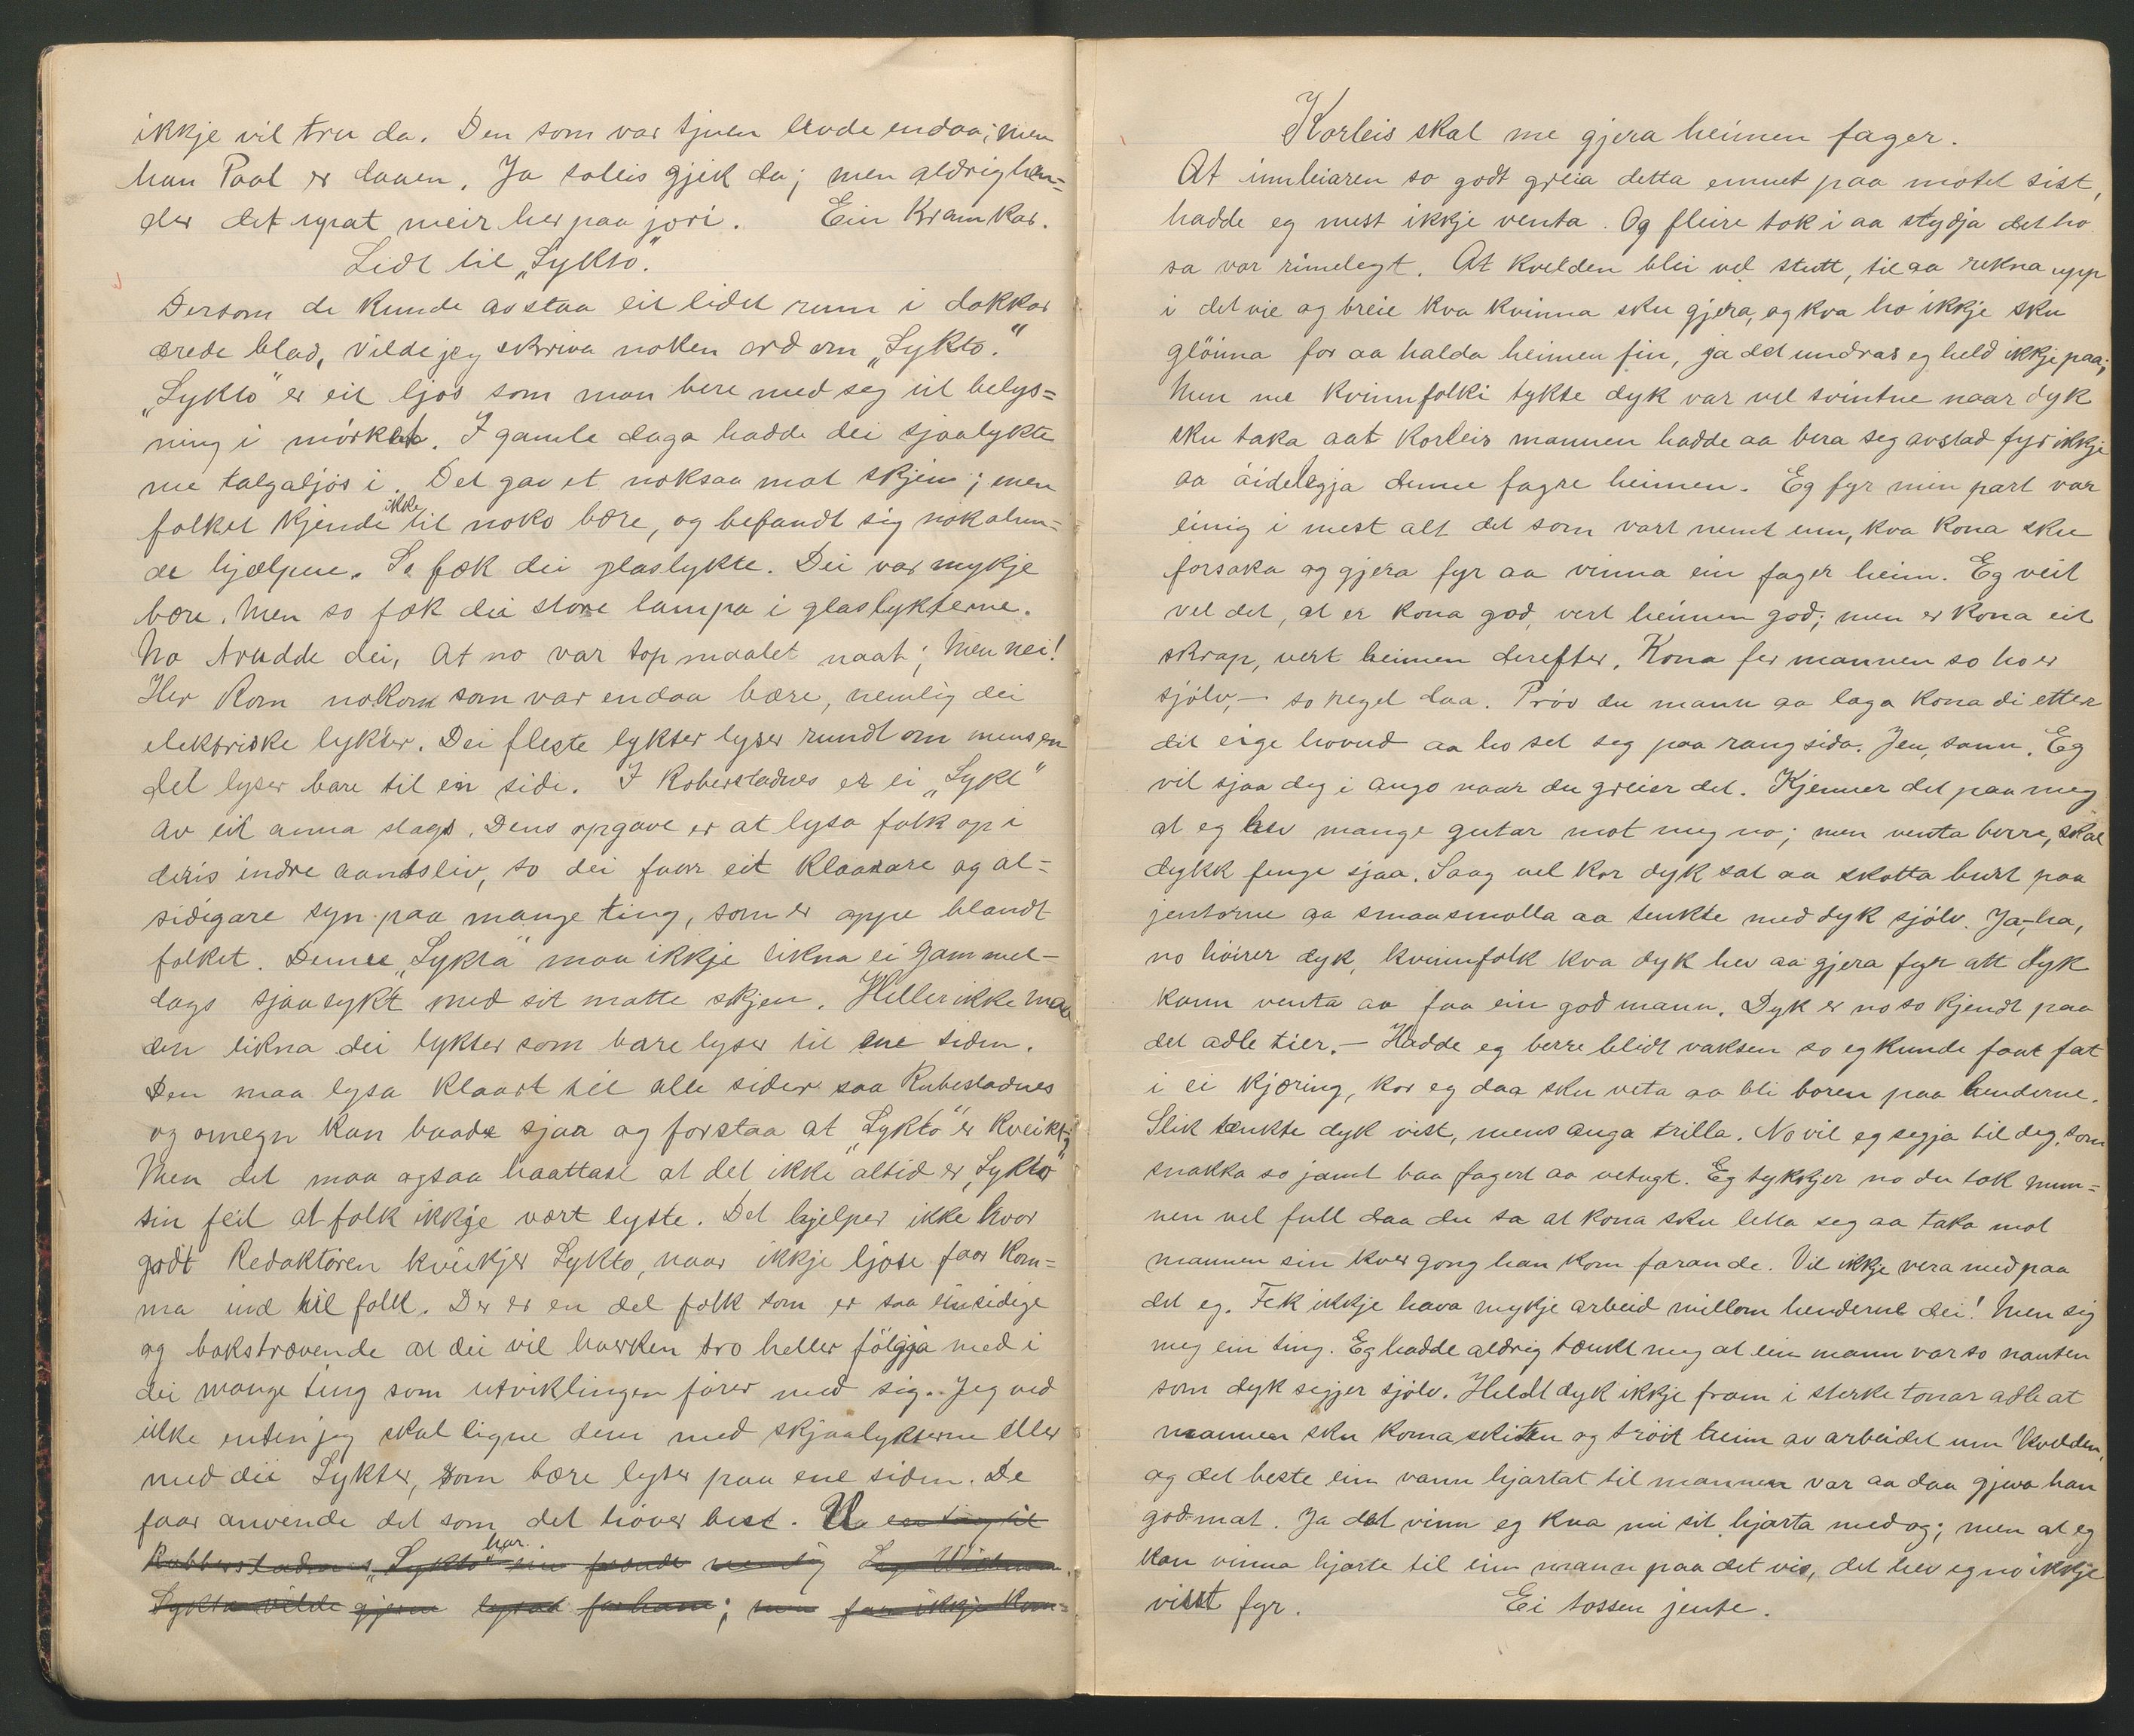 ikkje vil tru da. Den som var tjuen levde endaa; men
han Paal er daaen. Ja soleis gjek da; men aldrig hæn=
der det upat meir her paa jori. Ein Kramkar.
Lidt til „Lykto".
Dersom de kunde avstaa eit lidet rum i dokkar
ærede blad, vilde jeg skriva noken ord om „Lykto."
„Lykto" er eit ljos som man bere med seg til belys=
ning i mörket. I gamle daga hadde dei sjaalykte
me talgaljos i. Det gav et noksaa mat skjin; men
folket kjende ikke til noko bære, og befandt sig nok
de hjælpne. So fæk dei glaslykte. Dei var mykje
bære. Men so fæk dei store lampa i glaslykterne.
No trudde dei, at no var topmaalet naat; Men nei!
Her kom nokon som var endaa bære, nemlig dei
elektriske lykter. Dei fleste lykter lyser rundt om mens en
del lyser bare til ein side. I Roberstadnes er ei „Lykt"
av eit anna slags. Dens opgave er at lysa folk op i
deris indre aandsliv, so dei faar eit klaarare og al=
sidigare syn paa mange ting, som er oppe blandt
folket. Denne „Lykta" maa ikkje likna ei gammel-
dags sjaalykt med sit matte skjen. Heller ikke maa
den likna dei lykter som bare lyser til ene siden.
Den maa lysa klaart til alle sider saa Rubestadnes
og omegn kan baade sjaa og forstaa at „Lykto" er kveikt;
Men det maa ogsaa haattast at det ikke altid er „Lykto"
sin feil at folk ikkje vært lyste. Det hjelper ikke hvor
godt Redaktören kveikjer Lykto, naar ikkje ljose faar kom=
ma ind til folk. Der er en del folk som er saa einsidige
og bakstrævende at dei vil hverken tro heller fölgja med i
dei mange ting som utviklingen förer med sig. Jeg ved
ikke enten jeg skal ligne dem med skjaalykterne eller
med dei Lykter, som bære lyser paa ene siden. De
faar anvende det som det höver best. U en ting til
Rubberstadnes „Lykto" har ein fænde nemlig
Lykta vilde gjerne lysaa for ham; men faar ikkje kom=
Korleis skal me gjera heimen fager.
At innleiaren so godt greia detta emnet paa motet sist,
hadde eg mest ikkje venta. Og fleire tok i aa stydja det ho
sa var rimelegt. At kvelden blei vel stutt, til aa rekna upp
i det vie og breie kva kvinna sku gjera, og kva ho ikkje sku
glöima for aa halda heimen fin, ja det undras eg held ikkje paa;
Men me kvinnfolki tykte dyk var vel svintne naar dyk
sku taka aat korleis mannen hadde aa bera seg avstad fyr ikkje
aa öidelegja denne fagre heimen. Eg fyr min part var
einig i mest alt det som vart nemt um, kva kona sku
forsaka og gjera fyr aa vinna ein fager heim. Eg veit
vel det, at er kona god, vert heimen god; men er kona eit
skrap, vert heimen derefter. Kona fer mannen so ho er
sjölv, — so regel daa. Pröv du mann aa laga kona di etter
dit eige hovud aa ho set seg paa rangsida. Jen, sann. Eg
vil sjaa deg i augo naar du greier det. Kjenner det paa meg
at eg hev mange gutar mot meg no; men venta berre, skal
dykk fenge sjaa. Saag vel kor dyk sat aa skotta burt paa
jentorne aa smaasmolla aa tenkte med dyk sjölv. Ja-ha,
no höirer dyk, kvinnfolk kva dyk hev aa gjera fyr att dyk
kann venta aa faa ein god mann. Dyk er no so kjendt paa
det adle tier. — Hadde eg berre blidt vaksen so eg kunde faat fat
i ei kjæring, kor eg daa sku veta aa bli boren paa henderne.
Slik tænkte dyk vist, mens auga trilla. No vil eg segja til deg, som
snakka so jamt baa fagert aa vetugt. Eg tykkjer no du tok mun=
nen vel full daa du sa at kona sku letta seg aa taka mot
mannen sin kver gong han kom farande. Vil ikkje vera med paa
det eg. Fek ikkje hava mykje arbeid millom henderne dei! Men sig
meg ein ting. Eg hadde aldrig tænkt meg at ein mann var so nauten
som dyk segjer sjölv. Heldt dyk ikkje fram i sterke tonar adle at
mannen sku koma skitten og tröit heim av arbeidet um kvelden,
og det beste ein vann hjartat til mannen var aa daa gjeva han
godmat. Ja det vinn eg kva mi sit hjarta med og; men at eg
kan vinna hjarte til ein mann paa det vis, det hev eg no ikkje
visst fyr. Ei tossen jente.